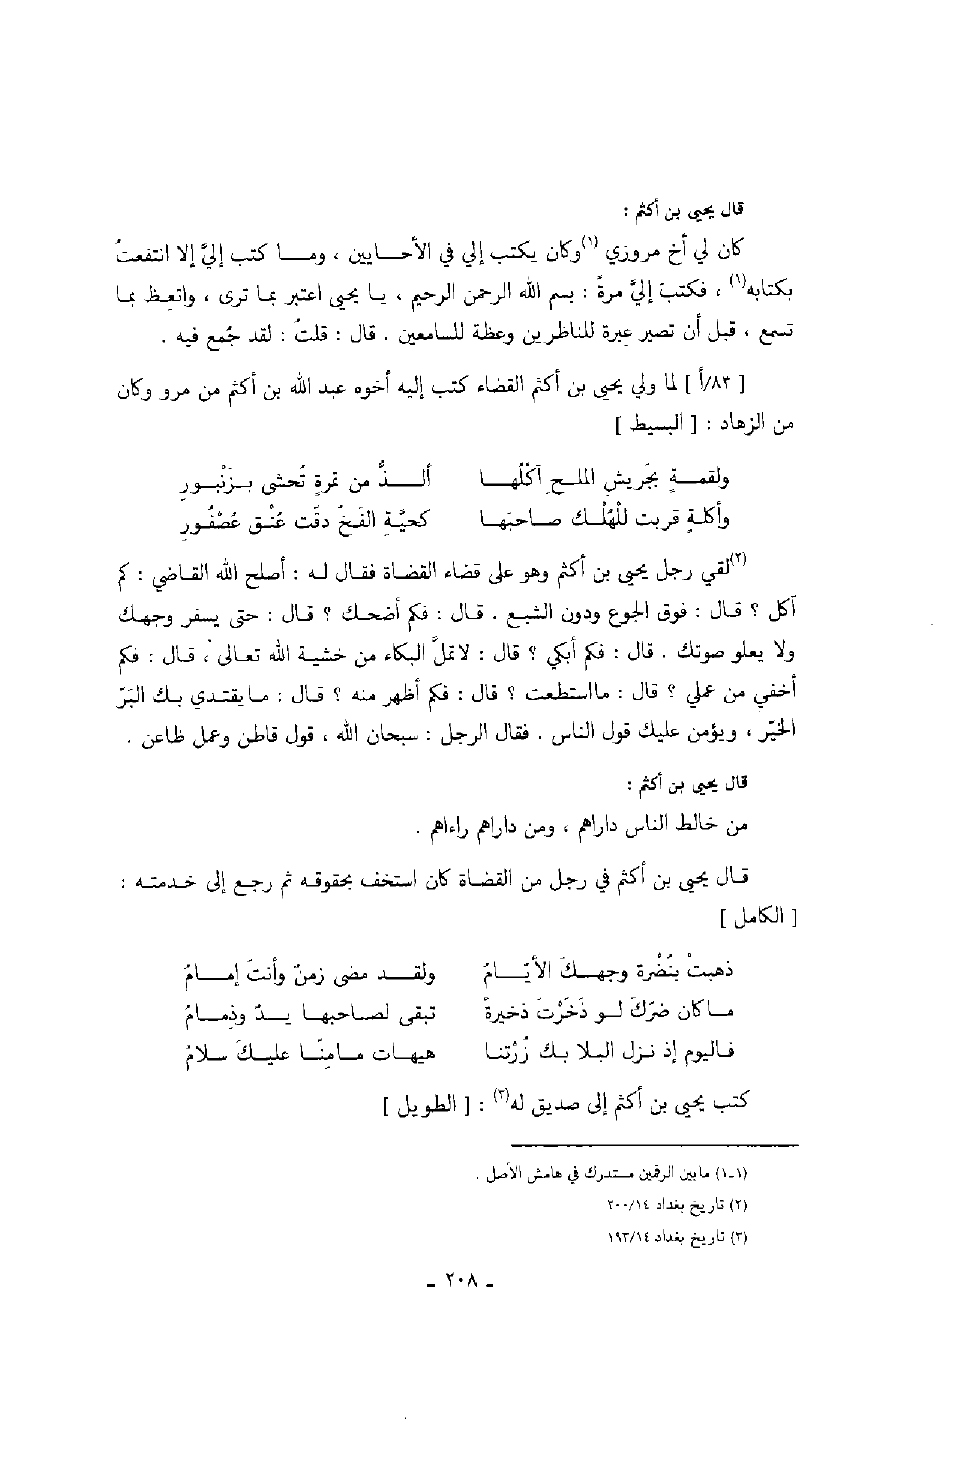 قال يحيى بن أكثم :
كان لي أخ مروزي (١)وكان يكتب إلي في الأحـايين ، ومـا كتب إليَّ إلا انتفعتُ
بكتابه(١) ، فكتب إليَّ مرةً : بسم الله الرحمن الرحيم ، يـا يحيى اعتبر بمـا ترى ، واتعِـظ بمـا
تسمع ، قبل أن تصير عِبرة للناظرين وعظة للسامعين . قال : قلتُ : لقد جُمع فيه .
[ ٨٣/أ ] لما ولي يحيى بن أكثم القضاء كتب إليه أخوه عبد الله بن أكثم من مرو وكان
من الزهاد : [ البسيط ]
ولقمـةٍ بجَريشِ الملـحِ آكُلُهـا ألـذُّ من تمرةٍ تُحشى بـزَنْبُـورِ
وأكلـةٍ قربت للْهُلْـك صـاحبَهـا كحبَّةِ الفَخِّ دقّت عنْـق عُصْفُـورِ
(٢)لقي رجل يحيى بن أكثم وهو على قضاء القضاة فقال لـه : أصلح الله القـاضي : كم
آكل ؟ قـال : فوق الجوع ودون الشبع . قـال : فكم أضحـك ؟ قـال : حتى يسفر وجهـك
ولا يعلو صوتك . قال : فكم أبكي ؟ قال : لا تملَّ البكاء من خشية الله تعـالى ، قـال : فكم
أخفي من عملي ؟ قال : مااستطعت ؟ قال : فكم أظهر منه ؟ قـال : مـا يقتـدي بـك البَرّ
الخيِّر ، ويؤمن عليك قول الناس . فقال الرجل : سبحان الله ، قول قاطن وعمل ظاعن .
قال يحيى بن أكثم :
من خالط الناس داراهم ، ومن داراهم راءاهم .
قـال يحيى بن أكثم في رجل من القضـاة كان استخف بحقوقـه ثم رجع إلى خـدمتـه :
[ الكامل ]
ذهبتْ بِنُضْرة وجهـكَ الأيَّـامُ ولقـد مضى زمنٌ وأنتَ إمـامُ
مـاكان ضرّكَ لـو ذَخَرْتَ ذخيرةً تبقى لصـاحبهـا يـدٌ وذِمـامُ
فـاليوم إذ نـزل البـلا بـك زُرْتنـا هيهات مـامِنّـا عليـكَ سـلامُ
كتب يحيى بن أكثم إلى صديق له(٣) : [ الطويل ]
(١-١) مابين الرقمين مستدرك في هامش الأصل .
(٢) تاريخ بغداد ٢٠٠/١٤
(٣) تاريخ بغداد ١٩٣/١٤
- ٢٠٨ -